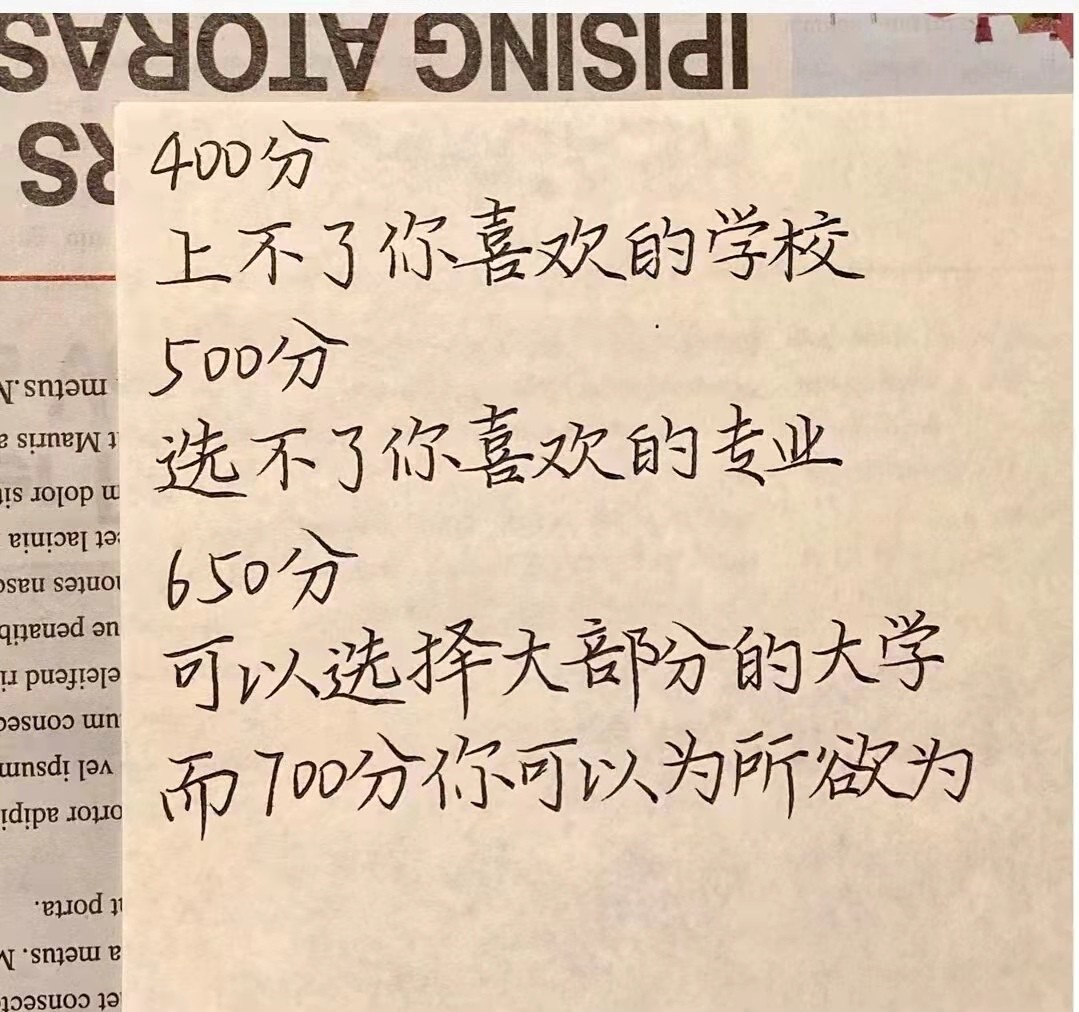 IPISING ATORAS
RS
400分
上不了你喜欢的学校
500分
选不了你喜欢的专业
650分
可以选择大部分的大学
而700分你可以为所欲为
metus.
Mauris
dolor
lacinia
montes
penatib
eleifend
consec
vel ipsum
tortor adipi
porta.
a metus. M
et consect